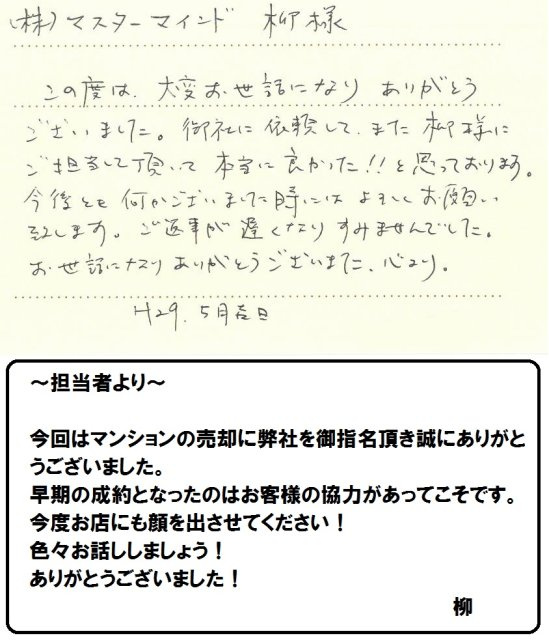 (株)マスターマインド 柳様
この度は、大変お世話になり ありがとう
ございました。御社に依頼して、また 柳様に
ご担当して頂いて 本当に良かった!!と思っております。
今後とも 何かございました時には よろしくお願い
致します。ご返事が 遅くなり すみませんでした。
お世話になり ありがとうございました、心より。
H29. 5月吉日
～担当者より～
今回はマンションの売却に弊社を御指名頂き誠にありがと
うございました。
早期の成約となったのはお客様の協力があってこそです。
今度お店にも顔を出させてください！
色々お話ししましょう！
ありがとうございました！
柳